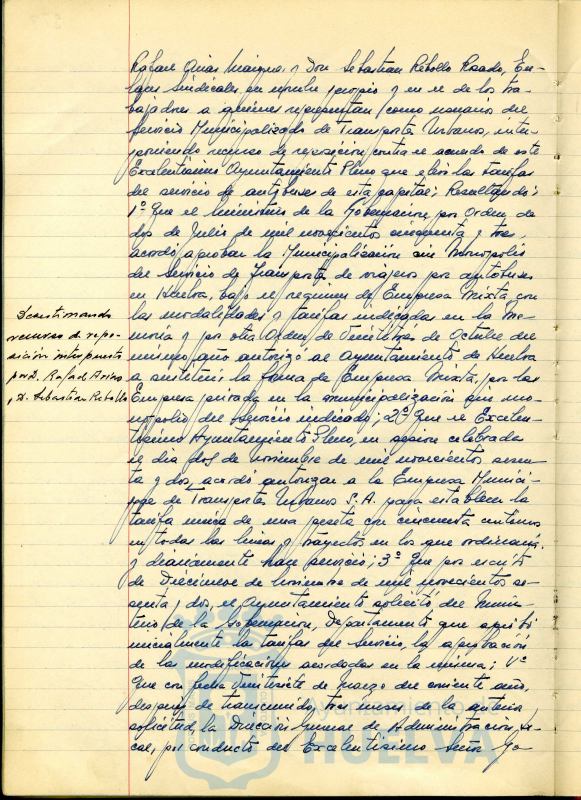 Rafael Arias Márquez y Don Sebastian Rebollo Rosado, En-
laces Sindicales, en nombre propio y en el de los tra-
bajadores a quienes representan como usuarios del
Servicio Municipalizado de Transporte Urbano, inter-
poniendo recurso de reposición contra el acuerdo de este
Excelentísimo Ayuntamiento Pleno que elevó las tarifas
del servicio de autobuses de esta capital; Resultando:
1º Que el Ministerio de la Gobernación, por Orden de
dos de Julio de mil novecientos cincuenta y tres,
acordó aprobar la Municipalización sin Monopolio
del Servicio de Transporte de viajeros por autobuses
en Huelva, bajo el regimen de Empresa Mixta con
las modalidades y tarifas indicadas en la Me-
moria y por otra Orden de Veintitrés de Octubre del
mismo año autorizó al Ayuntamiento de Huelva
a sustituir la forma de Empresa Mixta, por la
Empresa privada en la municipalización sin mo-
nopolio del servicio indicado; 2º Que el Excelen-
tísimo Ayuntamiento Pleno, en sesion celebrada
el dia dos de noviembre de mil novecientos sesen-
ta y dos, acordó autorizar a la Empresa Munici-
pal de Transportes Urbanos S.A. para establecer la
tarifa unica de una peseta con cincuenta centimos
en todas las lineas y trayectos en los que ordinaria
y diariamente hace servicio; 3º Que por escrito
de Diecinueve de noviembre de mil novecientos se-
senta y dos, el Ayuntamiento solicitó del Minis-
terio de la Gobernación, Departamento que aprobó
inicialmente las tarifas del Servicio, la aprobación
de las modificaciones acordadas en la misma; 4º
Que con fecha Veintisiete de Marzo del corriente año,
despues de transcurridos tres meses de la anterior
solicitud, la Dirección General de Administración Lo-
cal, por conducto del Excelentisimo Señor Go-
Desestimando
recurso de repo-
sición interpuesto
por D. Rafael Arias
y D. Sebastián Rebollo
Ayuntamiento de
HUELVA